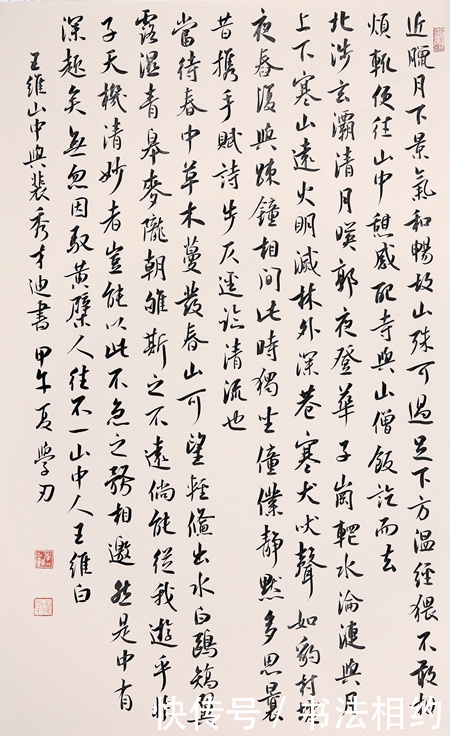 近臘月下景氣和暢故山殊可過足下方溫經猥不敢相
煩輒便往山中憩感配寺與山僧飯訖而去
北涉玄灞清月暎郭夜登華子崗輞水淪漣與月
上下寒山遠火明滅林外深巷寒犬吠聲如豹村墟
夜舂復與踈鐘相間此時獨坐僮僕靜默多思曩
昔携手賦詩步仄逕臨清流也
當待春中草木蔓發春山可望輕鯈出水白鷗矯翼
露濕青皋麥隴朝雊斯之不遠倘能從我遊乎非
子天機清妙者豈能以此不急之務相邀然是中有
深趣矣無忽因馱黃檗人往不一山中人王維白
王維山中與裴秀才迪書 甲午夏學刃
快传号/书法相约